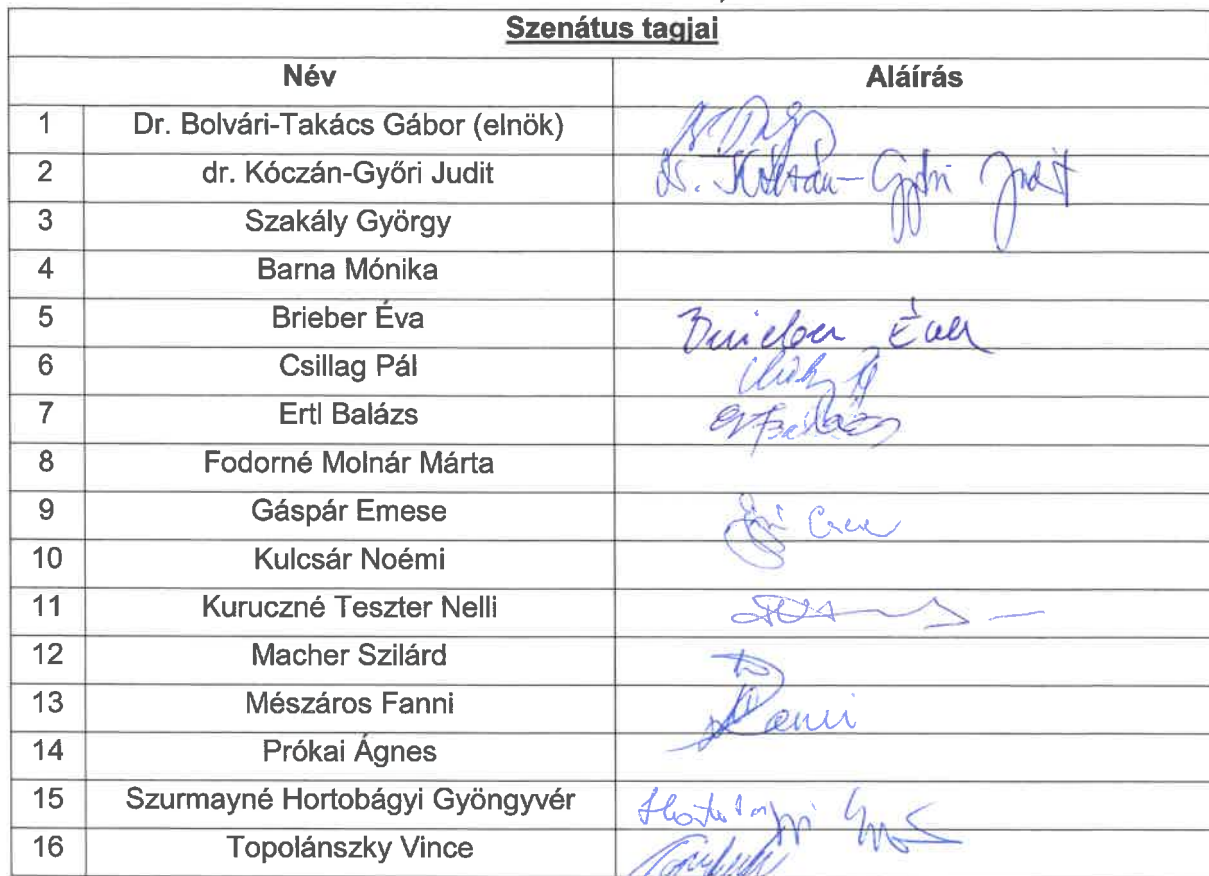 Szenátus tagjai
Név Aláírás
1 Dr. Bolvári-Takács Gábor (elnök)
2 dr. Kóczán-Győri Judit dr. Kóczán-Győri Judit
3 Szakály György
4 Barna Mónika
5 Brieber Éva Brieber Éva
6 Csillag Pál
7 Ertl Balázs
8 Fodorné Molnár Márta
9 Gáspár Emese
10 Kulcsár Noémi
11 Kuruczné Teszter Nelli
12 Macher Szilárd
13 Mészáros Fanni
14 Prókai Ágnes
15 Szurmayné Hortobágyi Gyöngyvér
16 Topolánszky Vince